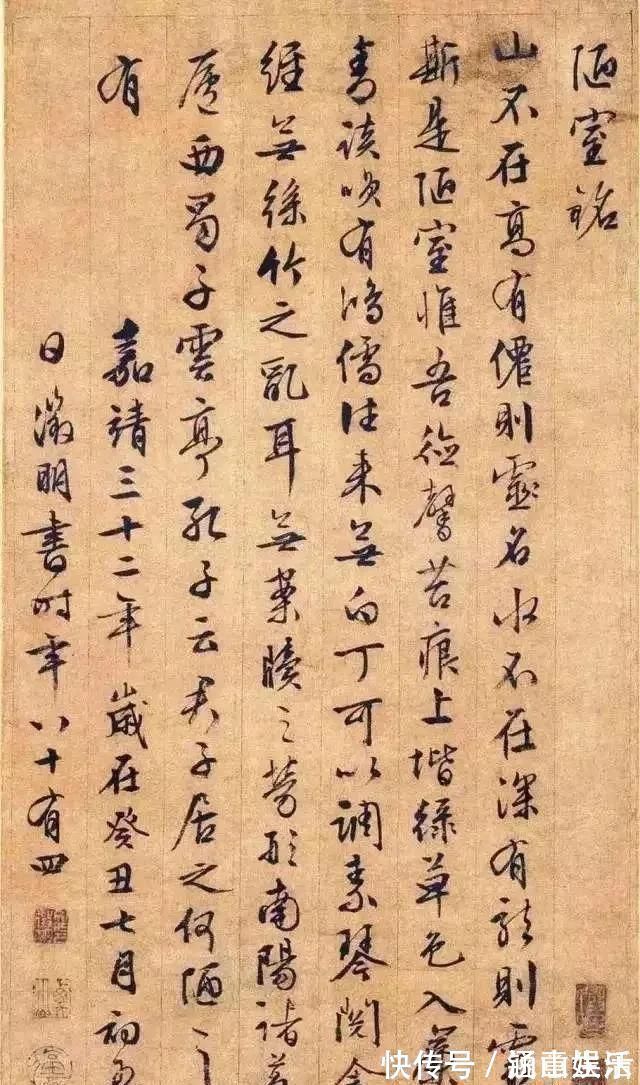 陋室銘
山不在高有僊則靈名水不在深有龍則靈
斯是陋室惟吾德馨苔痕上堦綠草色入簾
青談咲有鴻儒往来無白丁可以調素琴閱金
經無絲竹之亂耳無案牘之勞形南陽諸葛
廬西蜀子雲亭孔子云君子居之何陋之
有
嘉靖三十二年歲在癸丑七月初
日徵明書時年八十有四
快传号 / 涵娱乐